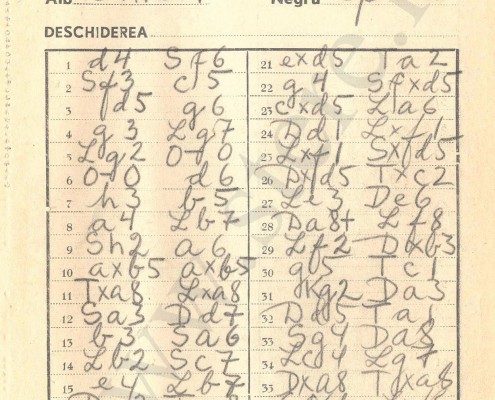 Alb
Negru
DESCHIDEREA
1 d4 Sf6
2 Sf3 c5
3 d5 g6
4 g3 Lg7
5 Lg2 0-0
6 0-0 d6
7 h3 b5
8 a4 Lb7
9 Sh2 a6
10 axb5 axb5
11 Txa8 Lxa8
12 Sa3 Dd7
13 b3 Sa6
14 Lb2 Sc7
15 e4 Lb7
21 exd5 Ta2
22 g4 Sfxd5
23 cxd5 La6
24 Dd1 Lxf1
25 Lxf1 Sxd5
26 Dxd5 Txc2
27 Le3 De6
28 Da8+ Lf8
29 Lf2 Dxb3
30 g5 Tc1
31 Kg2 Da3
32 Dd5 Ta1
33 Sg4 Da8
34 Lc4 Lg7
35 Dxa8 Txa8